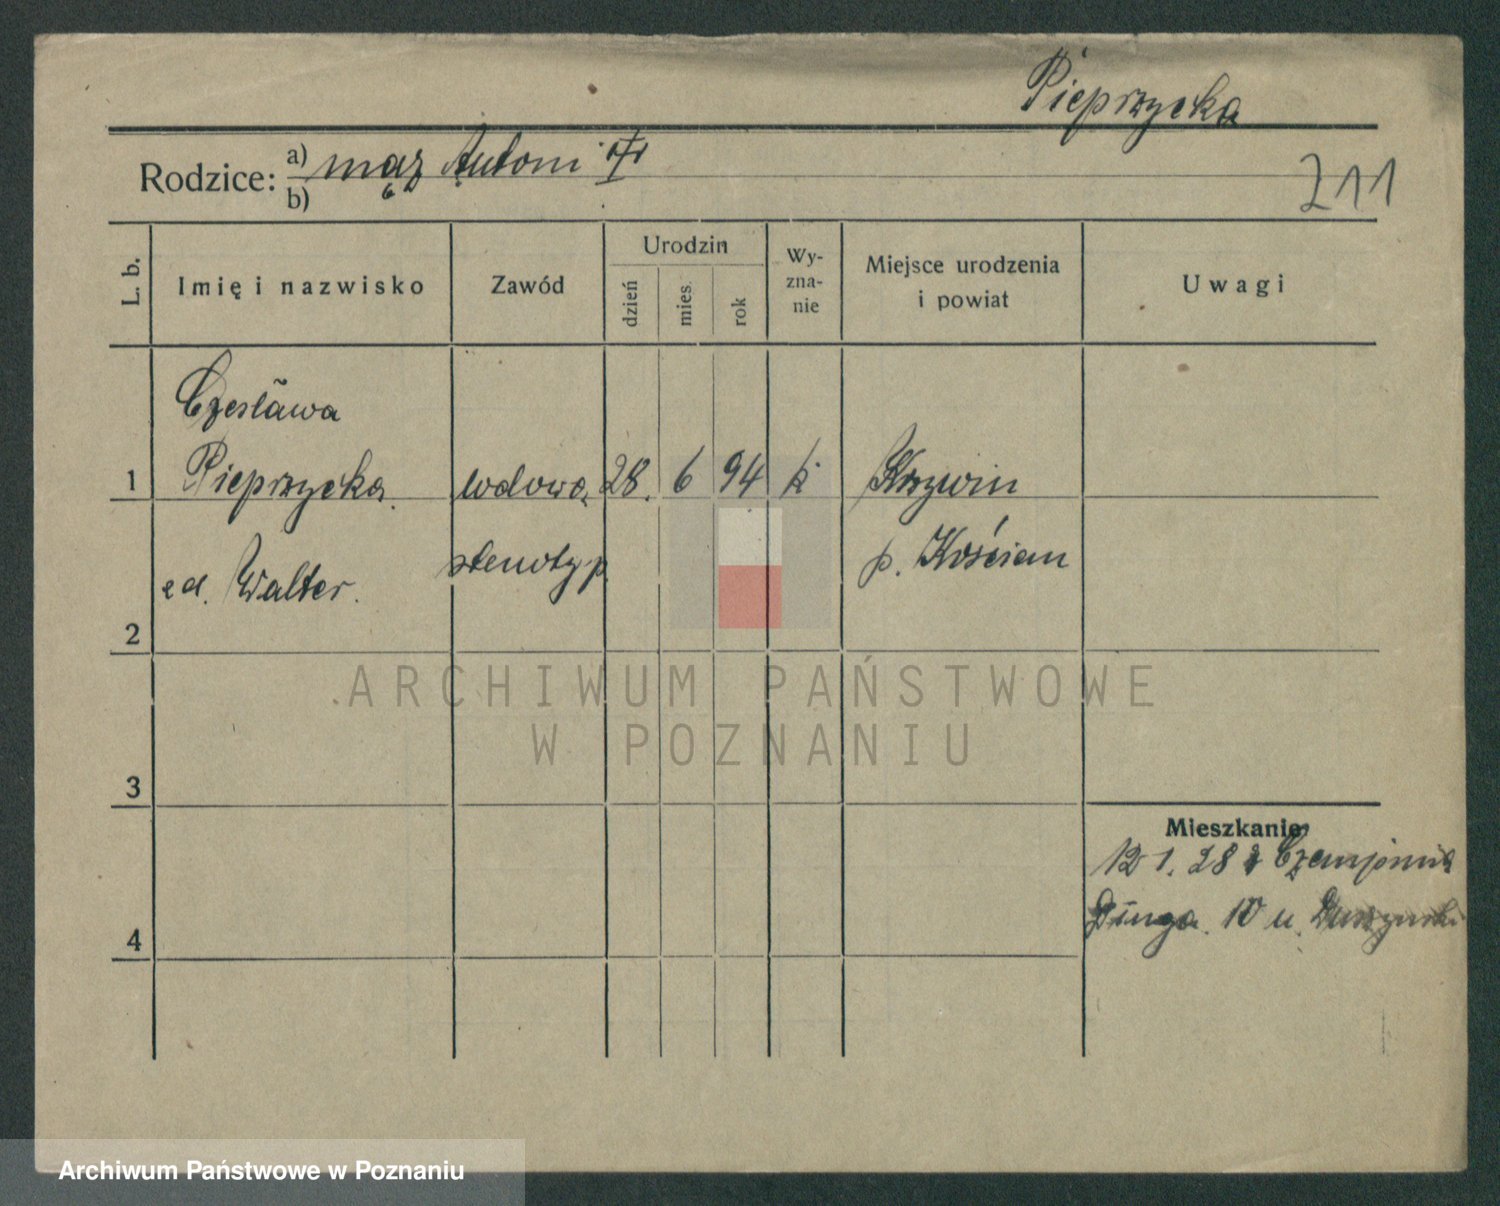 Pieprzycka
Rodzice: a) mąż Antoni
b)
211
L. b.
Imię i nazwisko
Zawód
Urodzin
dzień
mies.
rok
Wy-
zna-
nie
Miejsce urodzenia
i powiat
Uwagi
Czesława
1 Pieprzycka wdowa 28. 6 94 k Krzywin
zd. Walter. stenotyp. p. Kościan
2
ARCHIWUM PAŃSTWOWE
W POZNANIU
3
Mieszkanie
12 1. 28 z Czempinia
Długa 10 u.
4
Archiwum Państwowe w Poznaniu